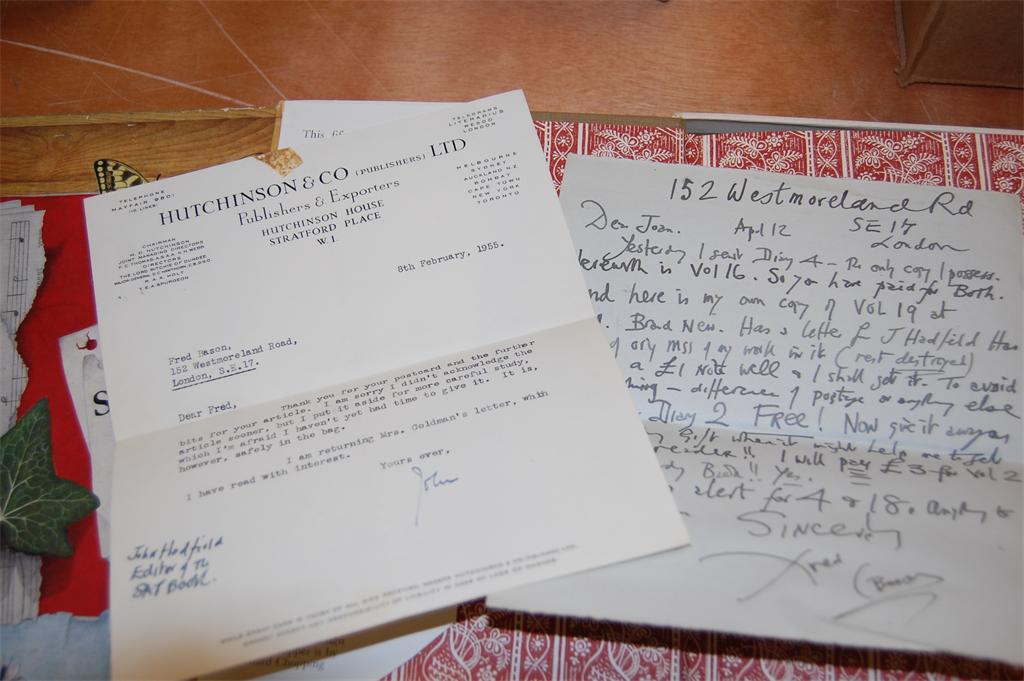 This
TELEPHONE
MAYFAIR 9801
(10 LINES)
TELEGRAMS
LITERARIUS
WESDO
LONDON
HUTCHINSON & CO (PUBLISHERS) LTD
Publishers & Exporters
HUTCHINSON HOUSE
STRATFORD PLACE
W.1.
MELBOURNE
SYDNEY
AUCKLAND N.Z
BOMBAY
CAPE TOWN
NEW YORK
TORONTO
CHAIRMAN
HUTCHINSON
JOINT MANAGING DIRECTORS
DIRECTORS
THE LORD RITCHIE OF DUNDEE
R.A.A. HOLT
T.E.A. SPURGEON
8th February, 1955.
Fred Bason,
152 Westmoreland Road,
London, S.E.17.
Dear Fred,
Thank you for your postcard and the further
bits for your article. I am sorry I didn't acknowledge the
article sooner, but I put it aside for more careful study,
which I'm afraid I haven't yet had time to give it. It is,
however, safely in the bag.
I am returning Mrs. Goldman's letter, which
I have read with interest.
Yours ever,
John
John Hadfield
Editor of The
SAT BOOK.
S
152 Westmoreland Rd
SE 17
London
Dear Joan. Apl 12
Yesterday I sent Diary 4 - The only copy I possess.
herewith is Vol 16. So you have paid for Both.
nd here is my own copy of VOL 19 at
Brand New. Has a letter f J Hadfield Has
only MSS of my work in it (rest destroyed)
a £1 Note will do I shall get it. To avoid
- difference of postage or anything else
Diary 2 FREE! Now give it away
Gift when it might help me to sell
!! I will pay £3 for Vol 2
Book!! Yes.
alert for 4 & 18. anything to
Sincerely
Fred (Bason)
Chopping